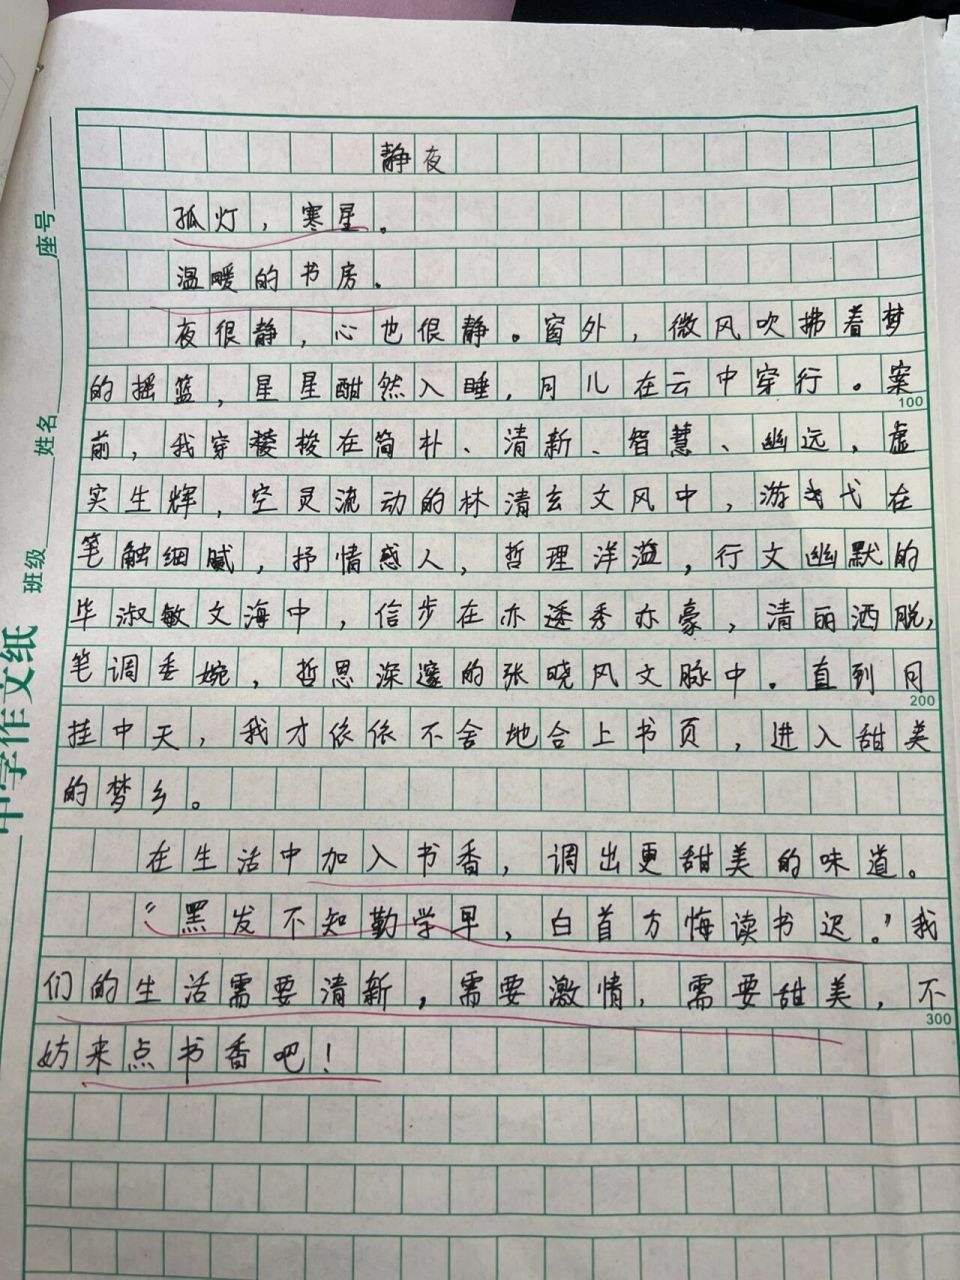 静夜
孤灯，寒星。
温暖的书房。
夜很静，心也很静。窗外，微风吹拂着梦
的摇篮，星星酣然入睡，月儿在云中穿行。案
100
前，我穿梭在简朴、清新、智慧、幽远，虚
实生辉，空灵流动的林清玄文风中，游弋在
笔触细腻，抒情惑人，哲理洋溢，行文幽默的
毕淑敏文海中，信步在亦透秀亦豪，清丽洒脱，
笔调委婉，哲思深邃的张晓风文脉中。直到月
200
挂中天，我才依依不舍地合上书页，进入甜美
的梦乡。
在生活中加入书香，调出更甜美的味道。
“黑发不知勤学早，白首方悔读书迟。”我
们的生活需要清新，需要激情，需要甜美，不
300
妨来点书香吧！
中学作文纸 班级 姓名 座号